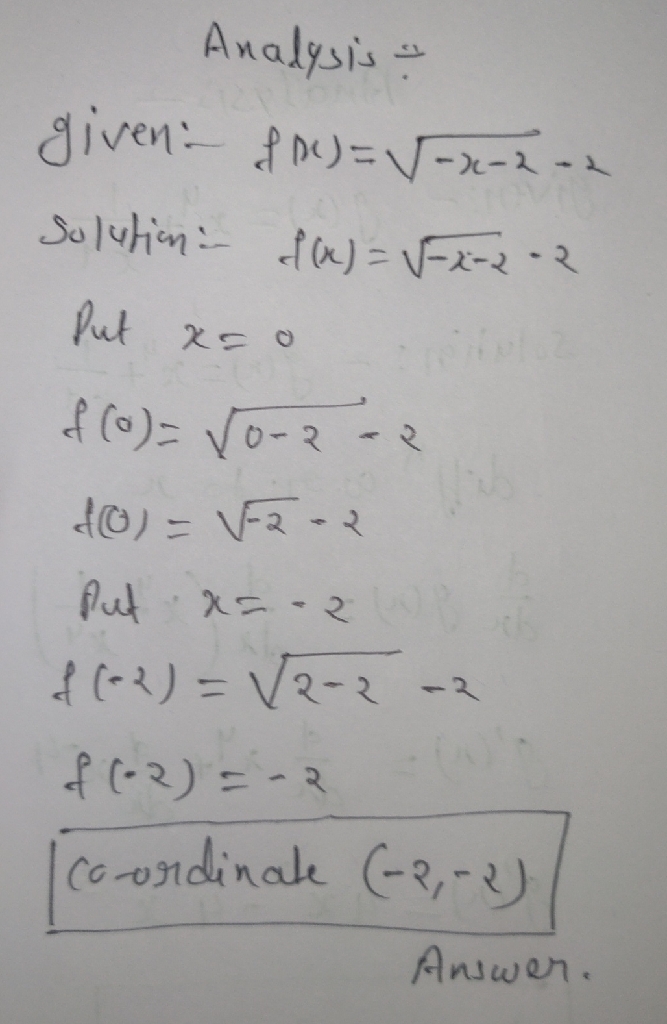 Analysis :-
given:- f(x) = √-x-2 - 2
Solution:- f(x) = √-x-2 - 2
Put x = 0
f(0) = √0-2 - 2
f(0) = √-2 - 2
Put x = -2
f(-2) = √2-2 - 2
f(-2) = -2
co-ordinate (-2,-2)
Answer.